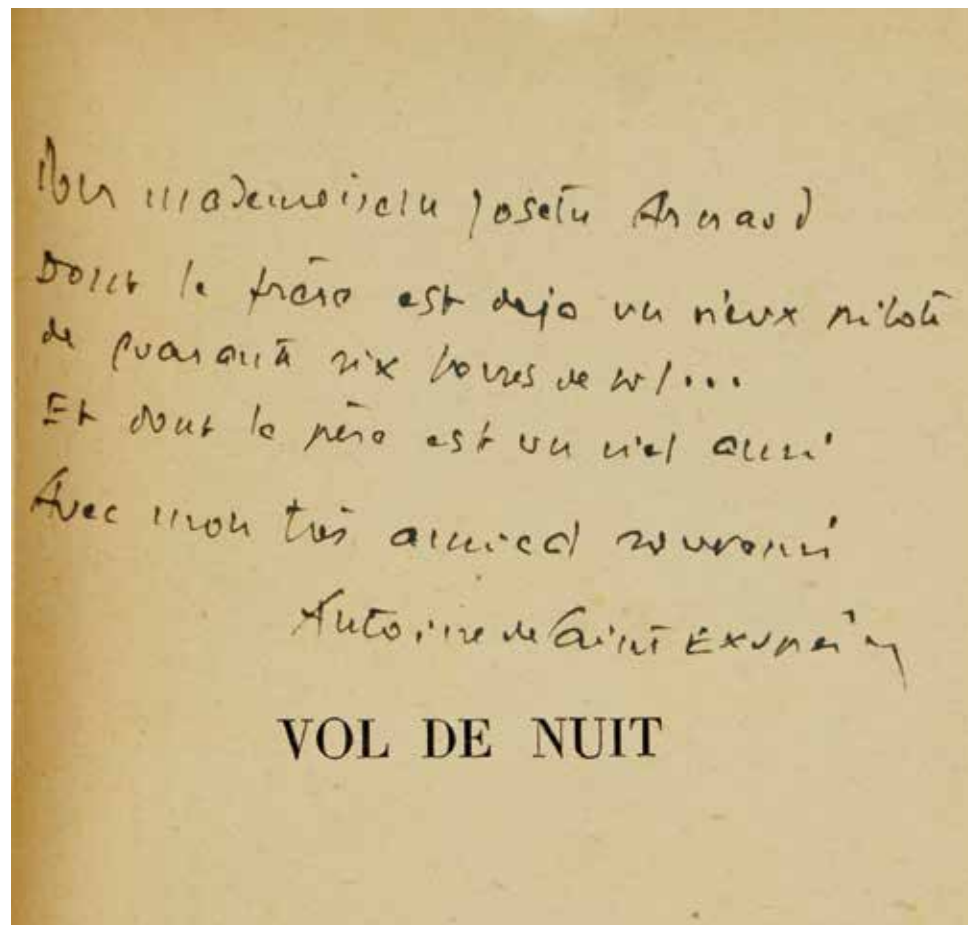 Pour mademoiselle Josette Arnaud
Dont le frère est deja un vieux pilote
de quarante six heures de vol...
Et dont le père est un vieil ami
Avec mon très amical souvenir
Antoine de Saint Exupéry
VOL DE NUIT